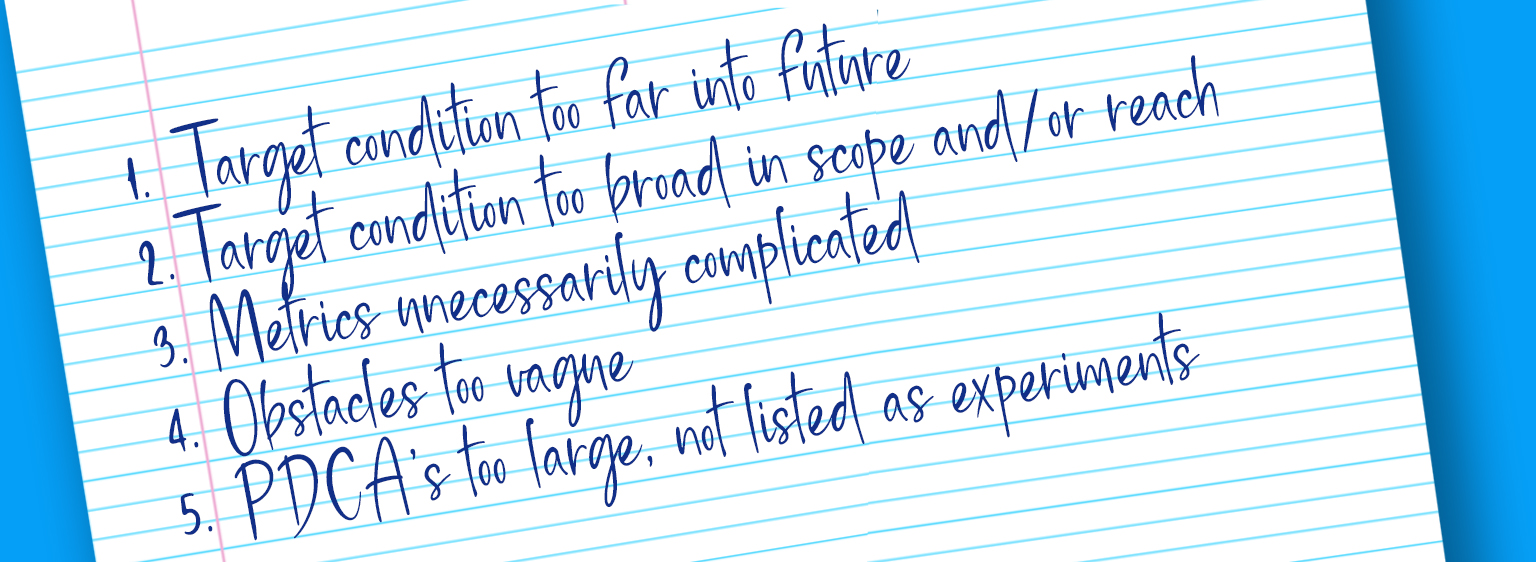 1. Target condition too far into future
2. Target condition too broad in scope and/or reach
3. Metrics unnecessarily complicated
4. Obstacles too vague
5. PDCA's too large, not listed as experiments